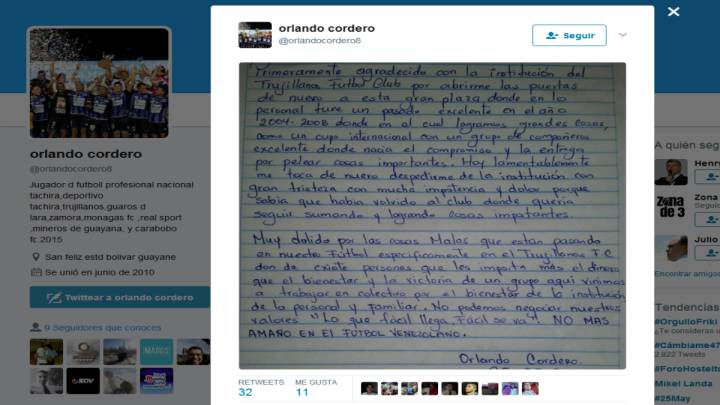 orlando cordero
@orlandocordero8
Seguir
Primeramente agradecido con la institución del
Trujillanos Futbol Club por abrirme las puertas
de nuevo a esta gran plaza donde en lo
personal tuve un pasado excelente en el año
2004-2008 donde en al cual logramos grandes cosas,
como un cupo internacional con un grupo de compañeros
excelente donde nacia el compromiso y la entrega
por pelear cosas importantes. Hoy lamentablemente
me toca de nuevo despedirme de la institución con
gran tristeza con mucha impotencia y dolor porque
sabia que habia volvido al club donde queria
seguir sumando y logrando cosas importantes.
Muy dolido por las cosas Malas que estan pasando
en nuestro Fútbol especificamente en el Trujillanos F.C
don de existe personas que les importa más el dinero
que el bienestar y la victoria de un grupo aqui vinimos
a trabajar en colectivo por el bienestar de la institución
de lo personal y Familiar. No podemos negociar nuestros
valores "Lo que fácil llega, Fácil se va" NO MAS
AMAÑO EN EL FÚTBOL VENEZOLANO.
Orlando Cordero.
RETWEETS
32
ME GUSTA
11
orlando cordero
@orlandocordero8
Jugador d futboll profesional nacional
tachira,deportivo
tachira,trujillanos,guaros d
lara,zamora,monagas fc ,real sport
,mineros de guayana, y carabobo
fc.2015
San feliz estd bolivar guayane
Se unió en junio de 2010
Twittear a orlando cordero
9 Seguidores que conoces
A quién seg
Henr
Zona
Seguido
ZONA
DE 3
Julio
Encontrar amigos
Tendencias
#OrgulloFriki
¿Te consideras u
#Cámbiame47
2.822 Tweets
#ForoHostelt
Mikel Landa
#25May